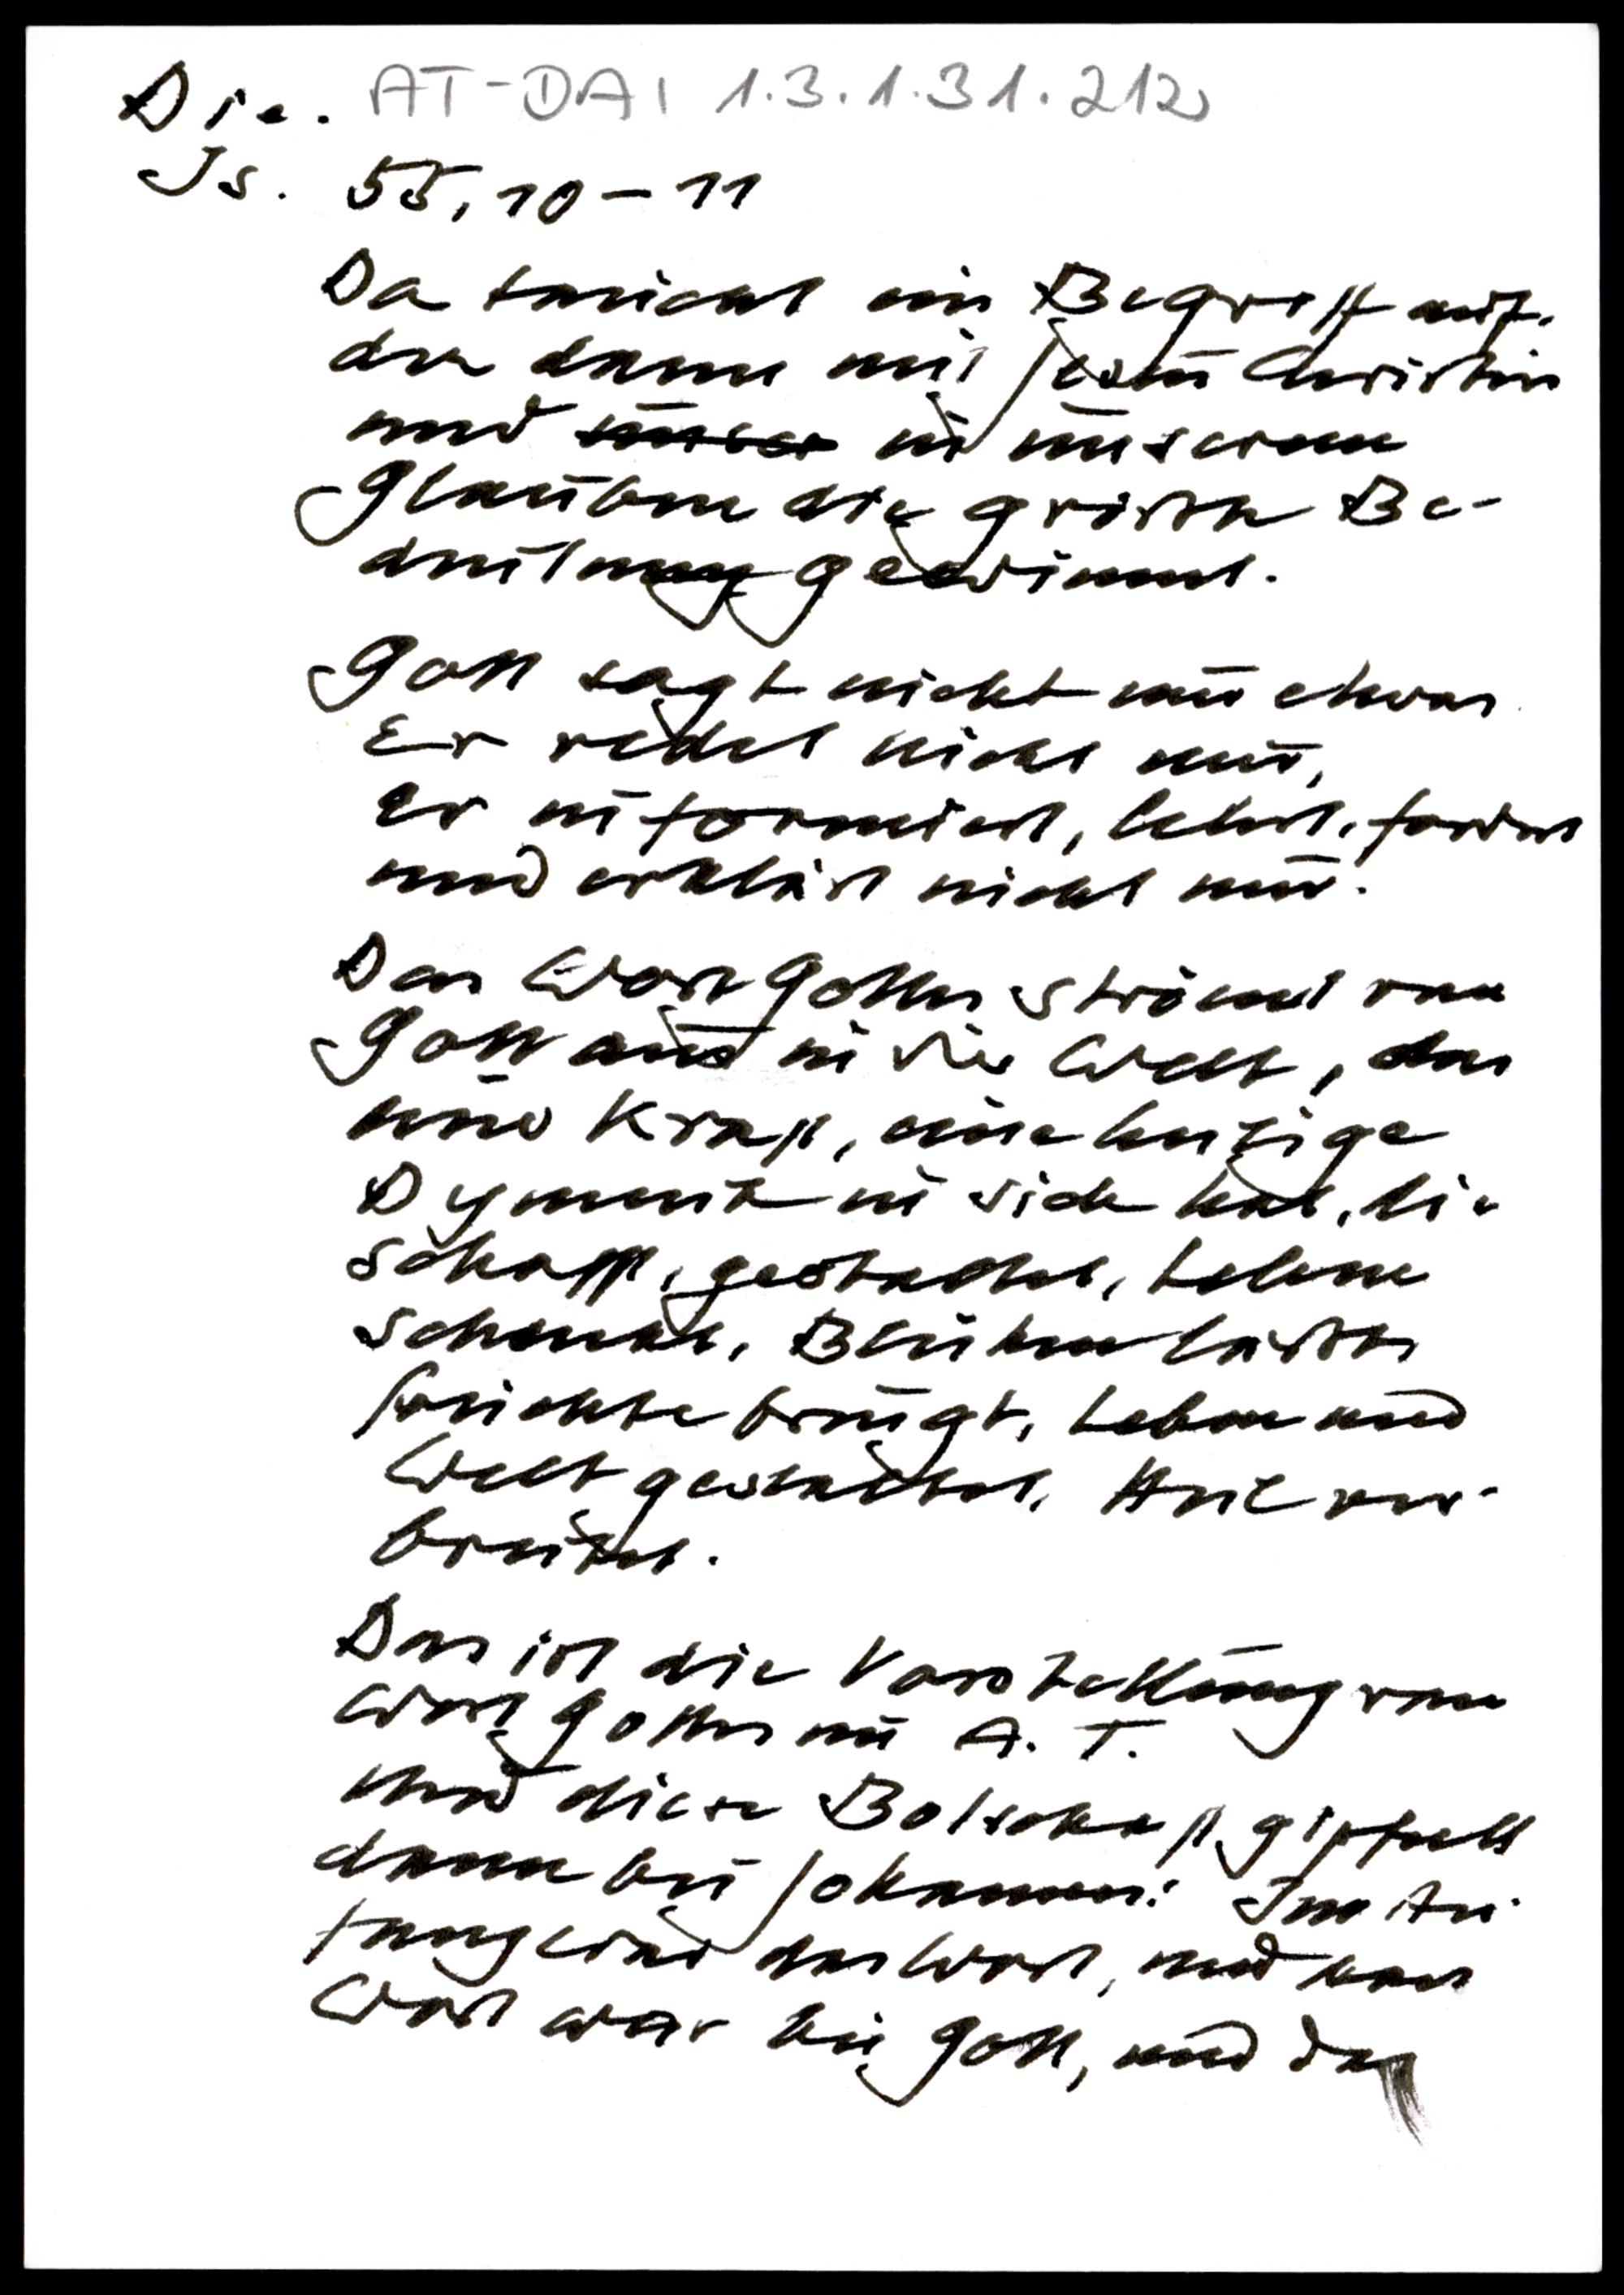 Die. AT-DAI 1.3.1.31.212
Js. 55, 10-11
Da taucht ein Begriff auf,
der dann mit Jesus Christus
und unser in unserem
Glauben die grösste Be-
deutung gewinnt.
Gott sagt nicht nur etwas
Er redet nicht nur,
Er informiert, lehrt, fordert
und erklärt nicht nur.
Das Wort Gottes strömt von
Gott aus in die Welt, das
eine Kraft, eine
in sich hat, die
schafft, gestaltet, Leben
schenkt, Blühen lässt,
Früchte bringt, Leben und
Welt gestaltet, Heil ver-
breitet.
Das ist die Vorstellung vom
Wort Gottes im A. T.
Und diese Botschaft gipfelt
dann bei Johannes: Im An-
fang war das Wort, und das
Wort war bei Gott, und das